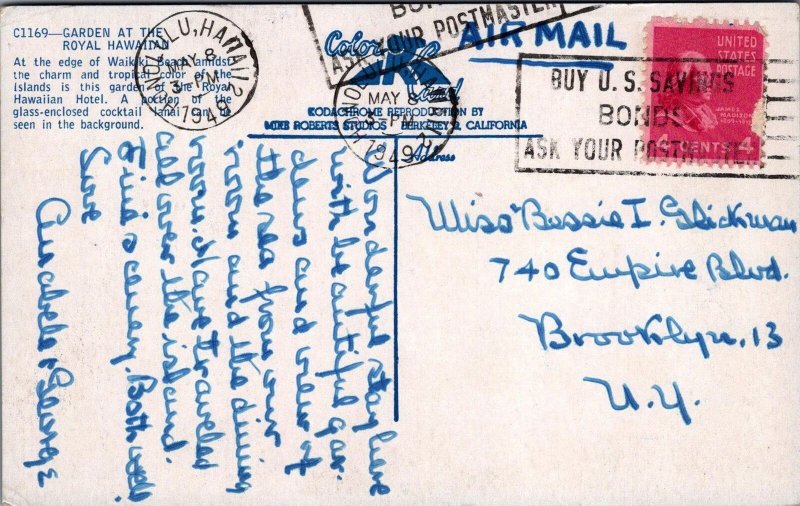 C1169—GARDEN AT THE
ROYAL HAWAIIAN
At the edge of Waikiki Beach amidst
the charm and tropical color of the
islands is this garden of the Royal
Hawaiian Hotel. A portion of the
glass-enclosed cocktail lanai can be
seen in the background.
HONOLULU, HAWAII 2
MAY 8
3-PM
1949
Color
Card
KODACHROME REPRODUCTION BY
MIKE ROBERTS STUDIOS BERKELEY 2, CALIFORNIA
Address
MAY 8
PM
1949
BONDS
ASK YOUR POSTMASTER
AIR MAIL
BUY U.S. SAVINGS
BONDS
ASK YOUR POSTMASTER
UNITED
STATES
POSTAGE
JAMES
MADISON
4 CENTS 4
Wonderful stay here
with beautiful gar-
dens and view of
the sea from our
room and the dining
room. Have traveled
all over the island.
Find scenery. Both well
Love
Annabele & George
Miss Bessie I. Glickman
740 Empire Blvd.
Brooklyn, 13
N.Y.